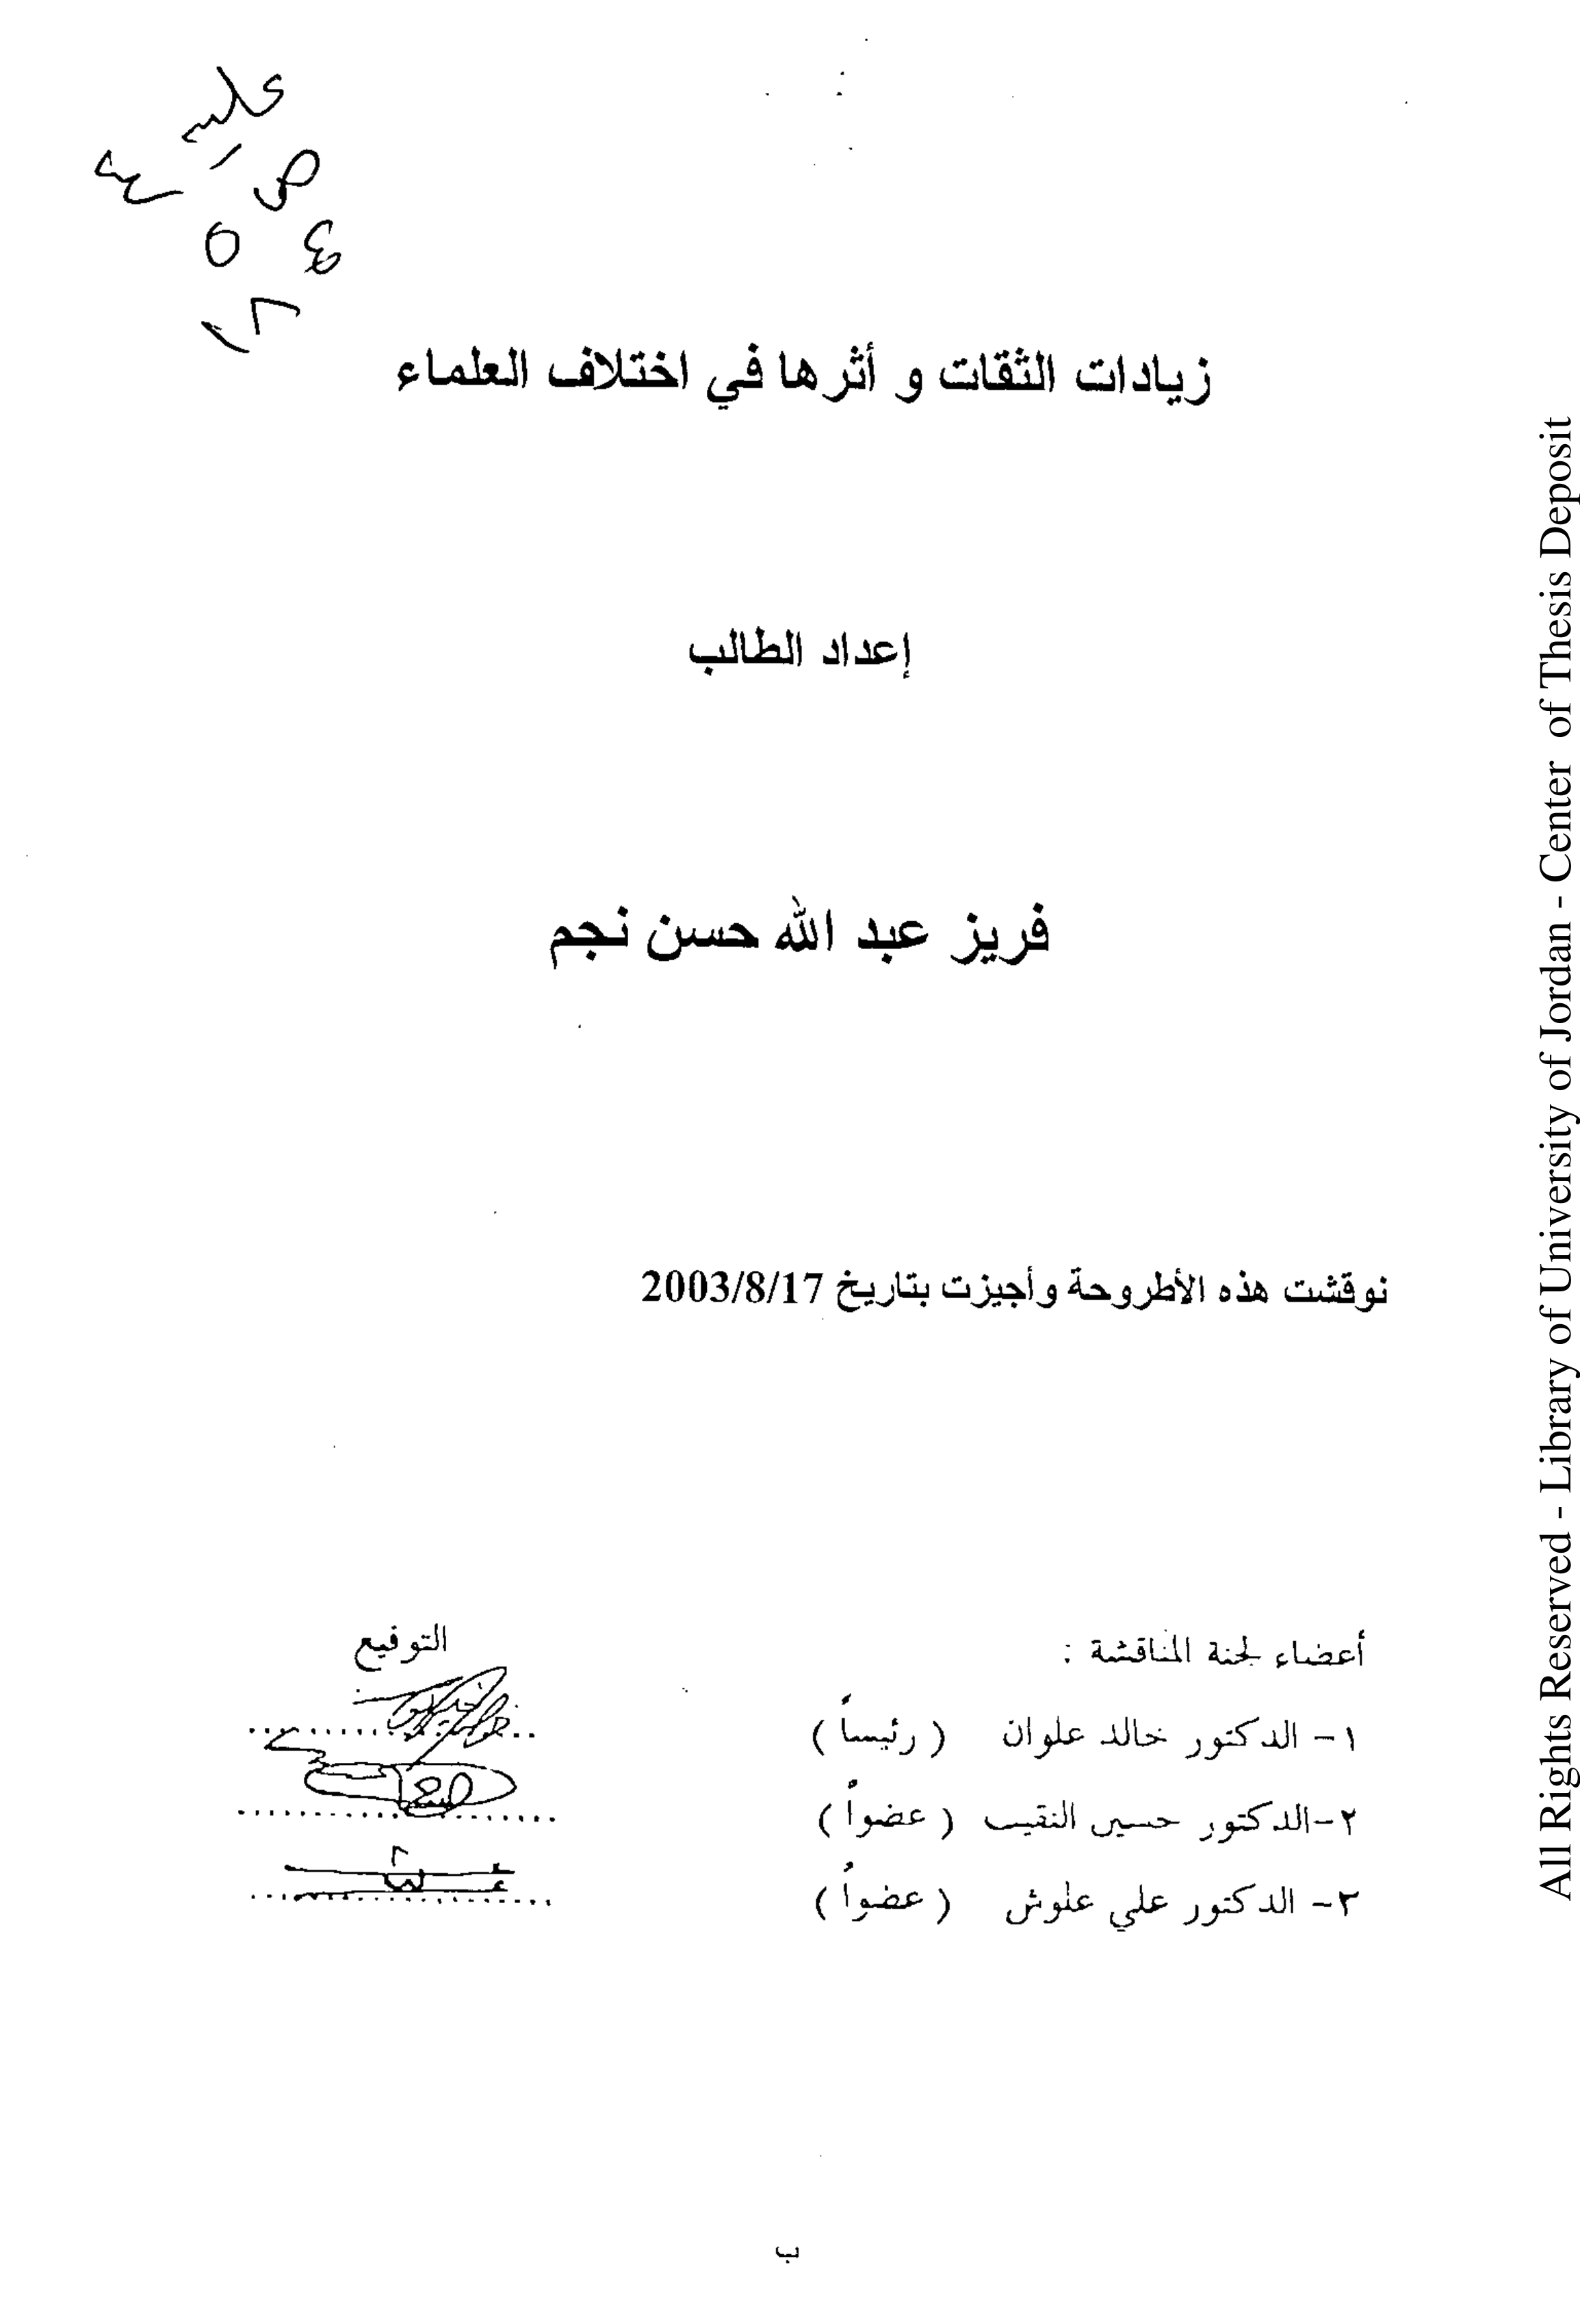 زيادات الثقات و أثرها في اختلاف العلماء
إعداد الطالب
فريز عبد الله حسن نجم
نوقشت هذه الأطروحة وأجيزت بتاريخ 2003/8/17
أعضاء لجنة المناقشة :
التوقيع
١- الدكتور خالد علوان ( رئيساً )
٢-الدكتور حسين النقيب ( عضواً )
٣- الدكتور علي علوش ( عضواً )
ب
All Rights Reserved - Library of University of Jordan - Center of Thesis Deposit